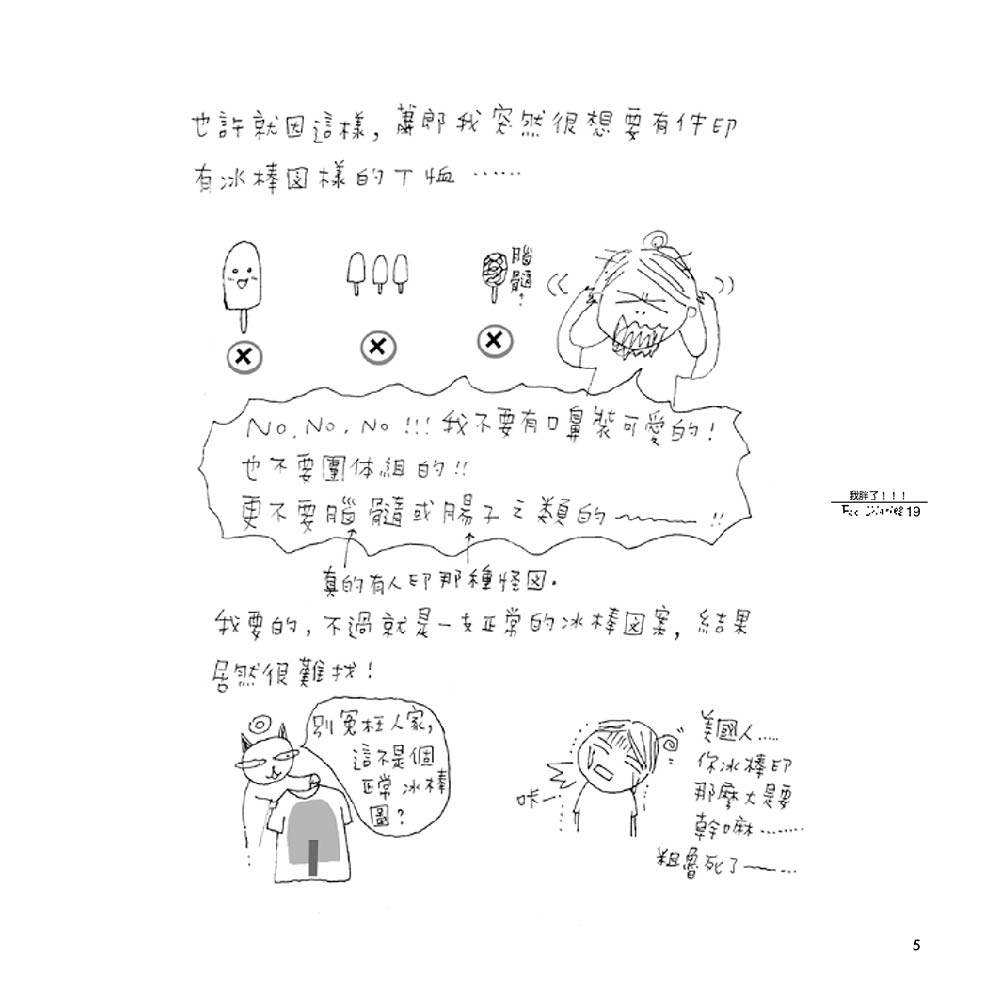 也許就因這樣,蕭郎我突然很想要有件印
有冰棒図樣的T恤……
腦
髓?
No, No, No!!!我不要有口鼻裝可愛的!
也不要團体組的!!
更不要腦髓或腸子之類的~!!
真的有人印那種怪図.
我要的,不過就是一支正常的冰棒図案,結果
居然很難找!
別冤枉人家,
這不是個
正常冰棒
圖?
咔—
美國人……
你冰棒印
那麼大是要
幹嘛………
粗魯死了~…
我胖了!!!
19
5